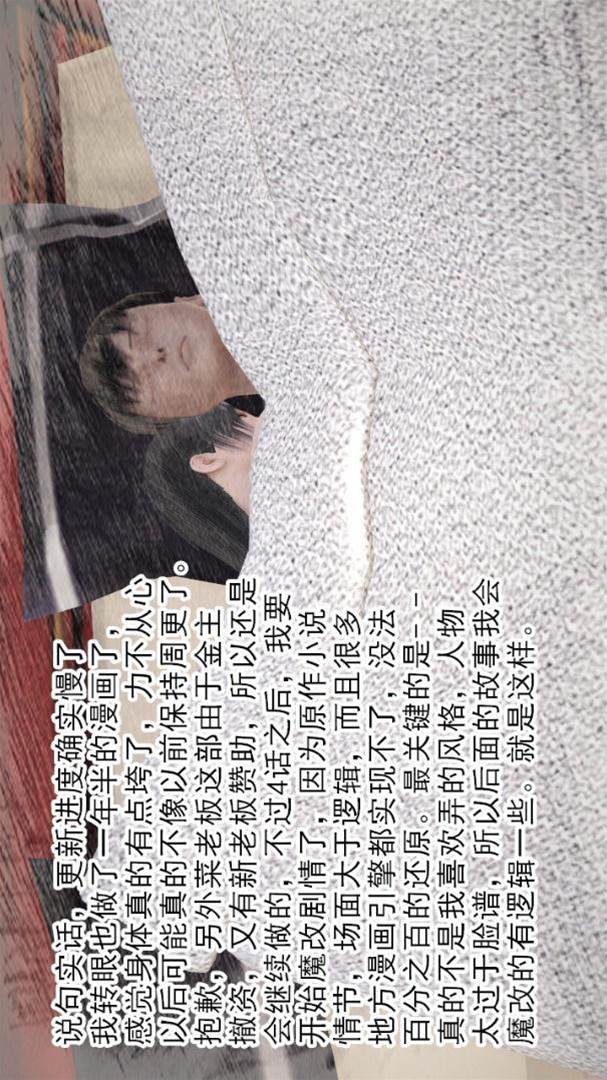 说句实话，更新进度确实慢了
我转眼也做了一年半的漫画了，
感觉身体真的有点垮了，力不从心
以后可能真的不像以前保持周更了。
抱歉，另外菜老板这部由于金主
撤资，又有新老板赞助，所以还是
会继续做的，不过4话之后，我要
开始魔改剧情了，因为原作小说
情节，场面大于逻辑，而且很多
地方漫画引擎都实现不了，没法
百分之百的还原。最关键的是--
真的不是我喜欢弄的风格，人物
太过于脸谱，所以后面的故事我会
魔改的有逻辑一些。就是这样。